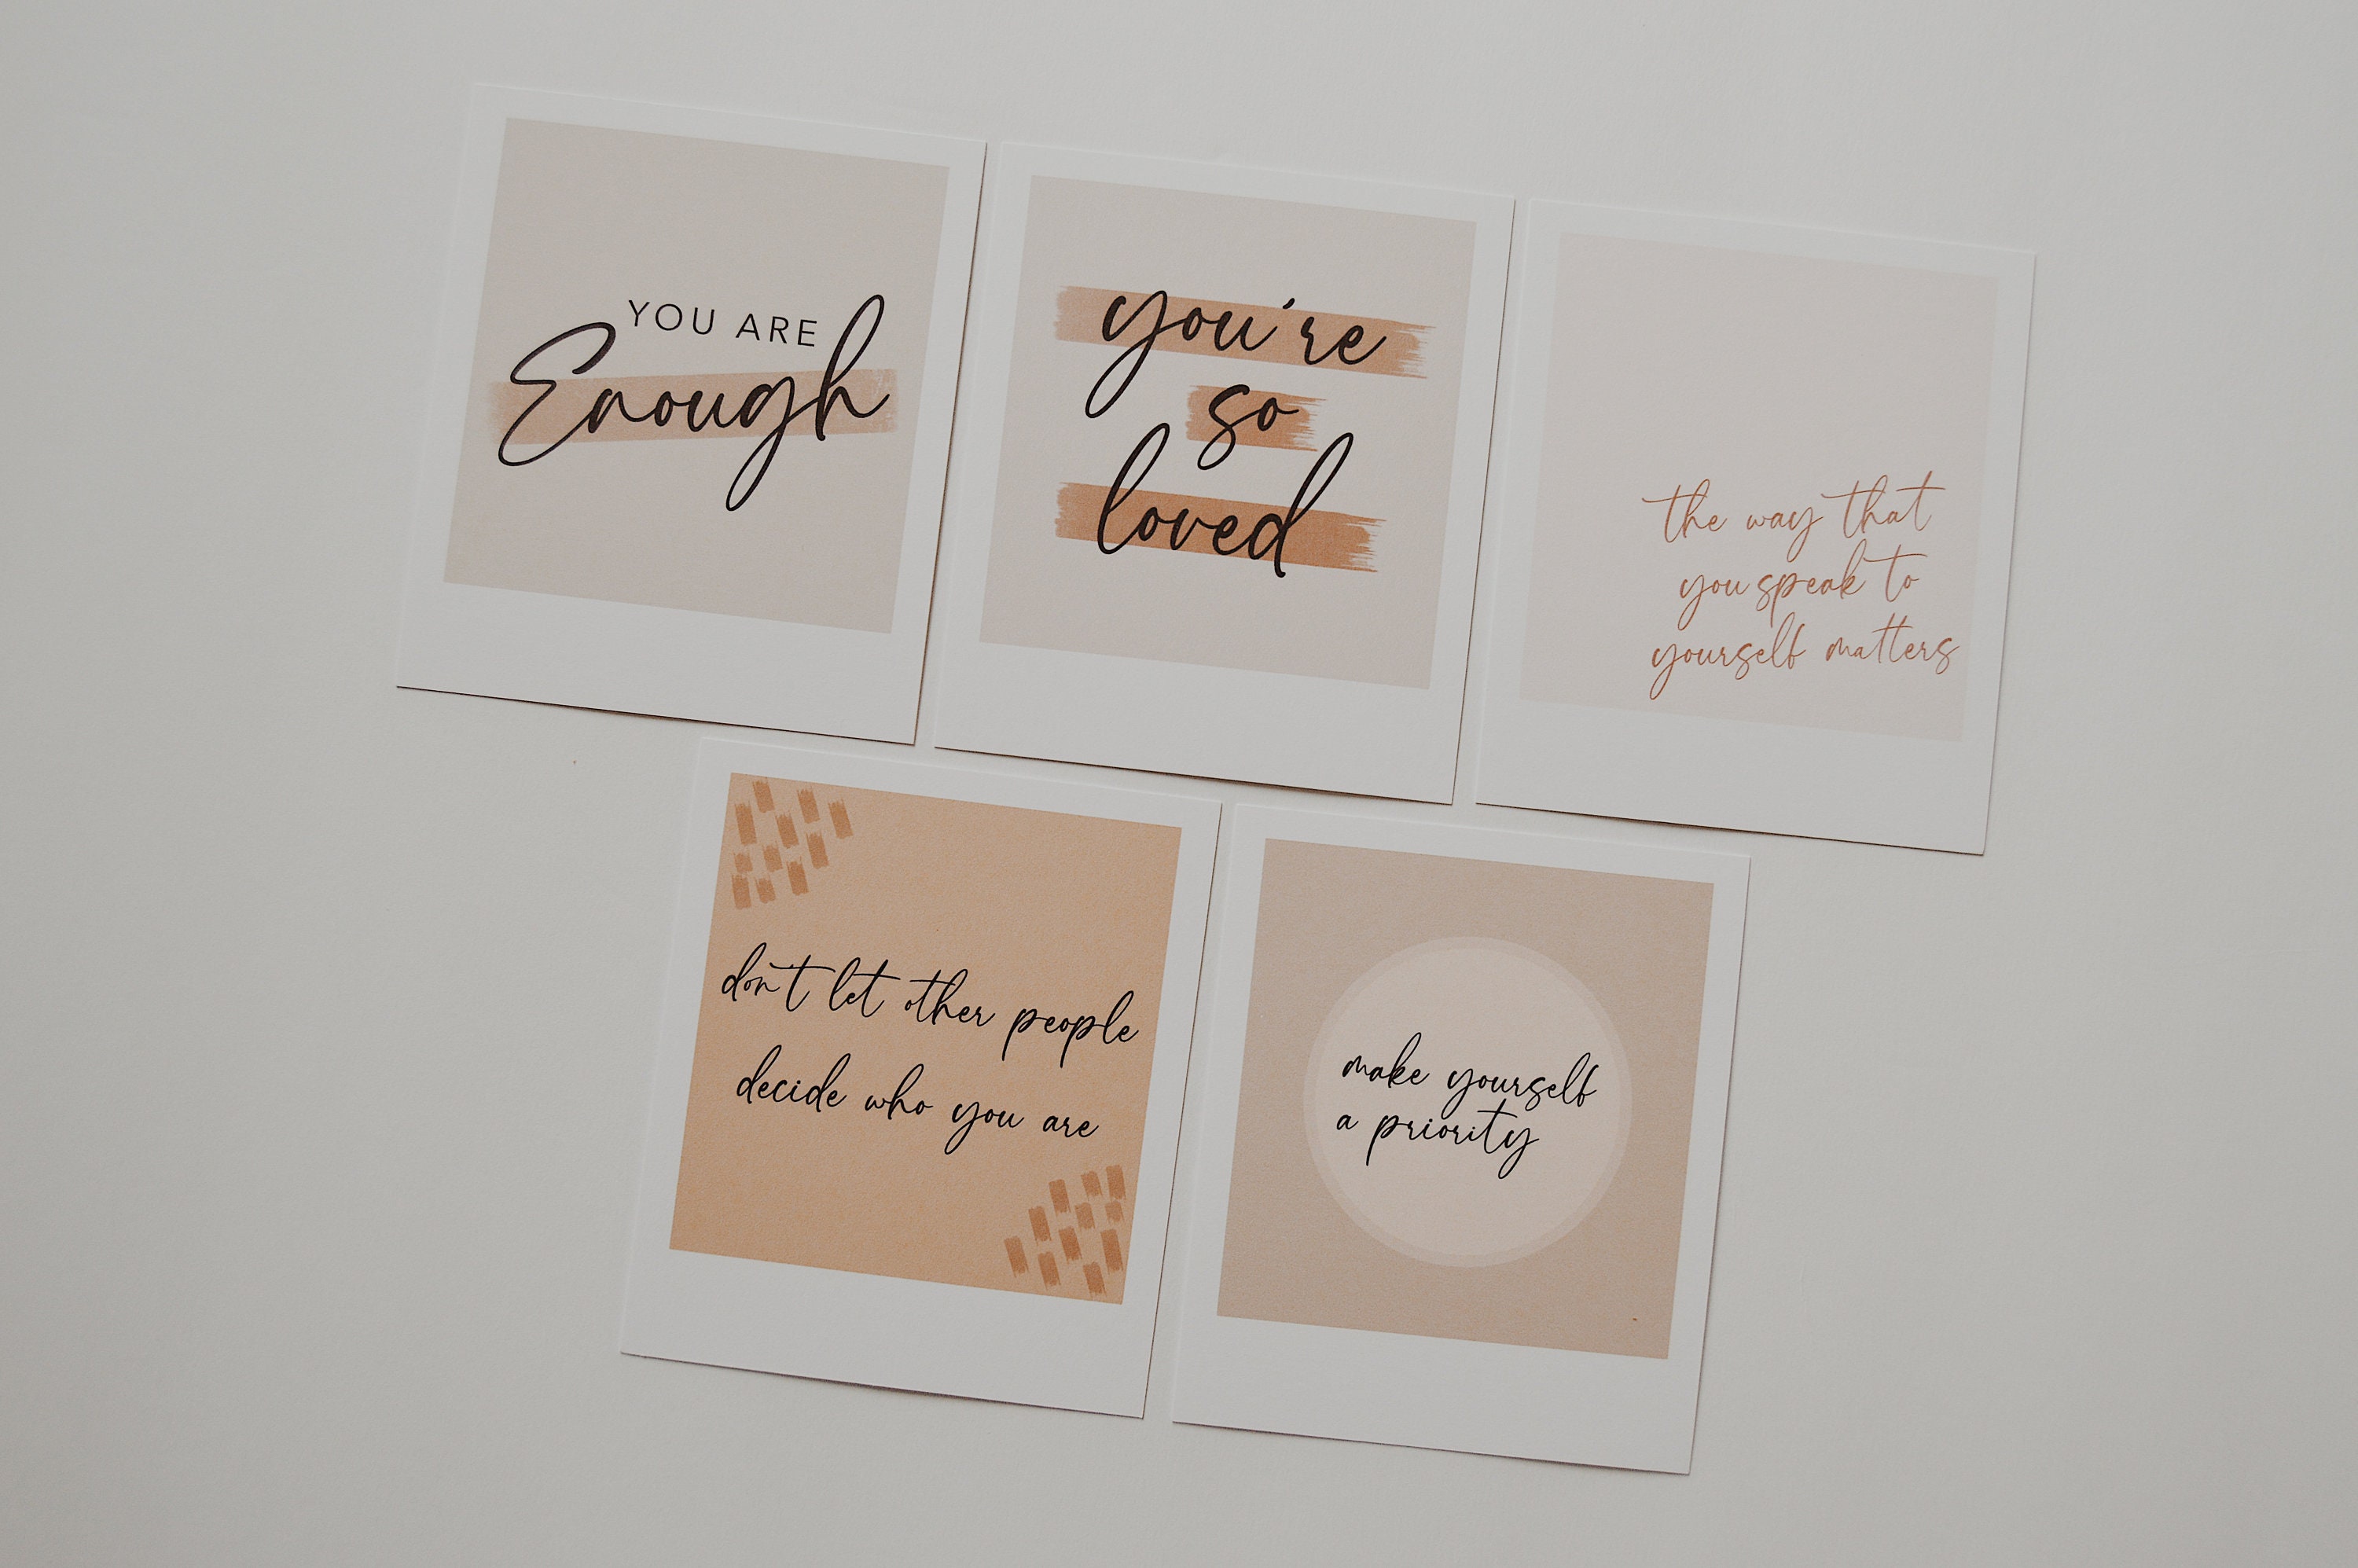 YOU ARE
Enough
you're
so
loved
the way that
you speak to
yourself matters
don't let other people
decide who you are
make yourself
a priority